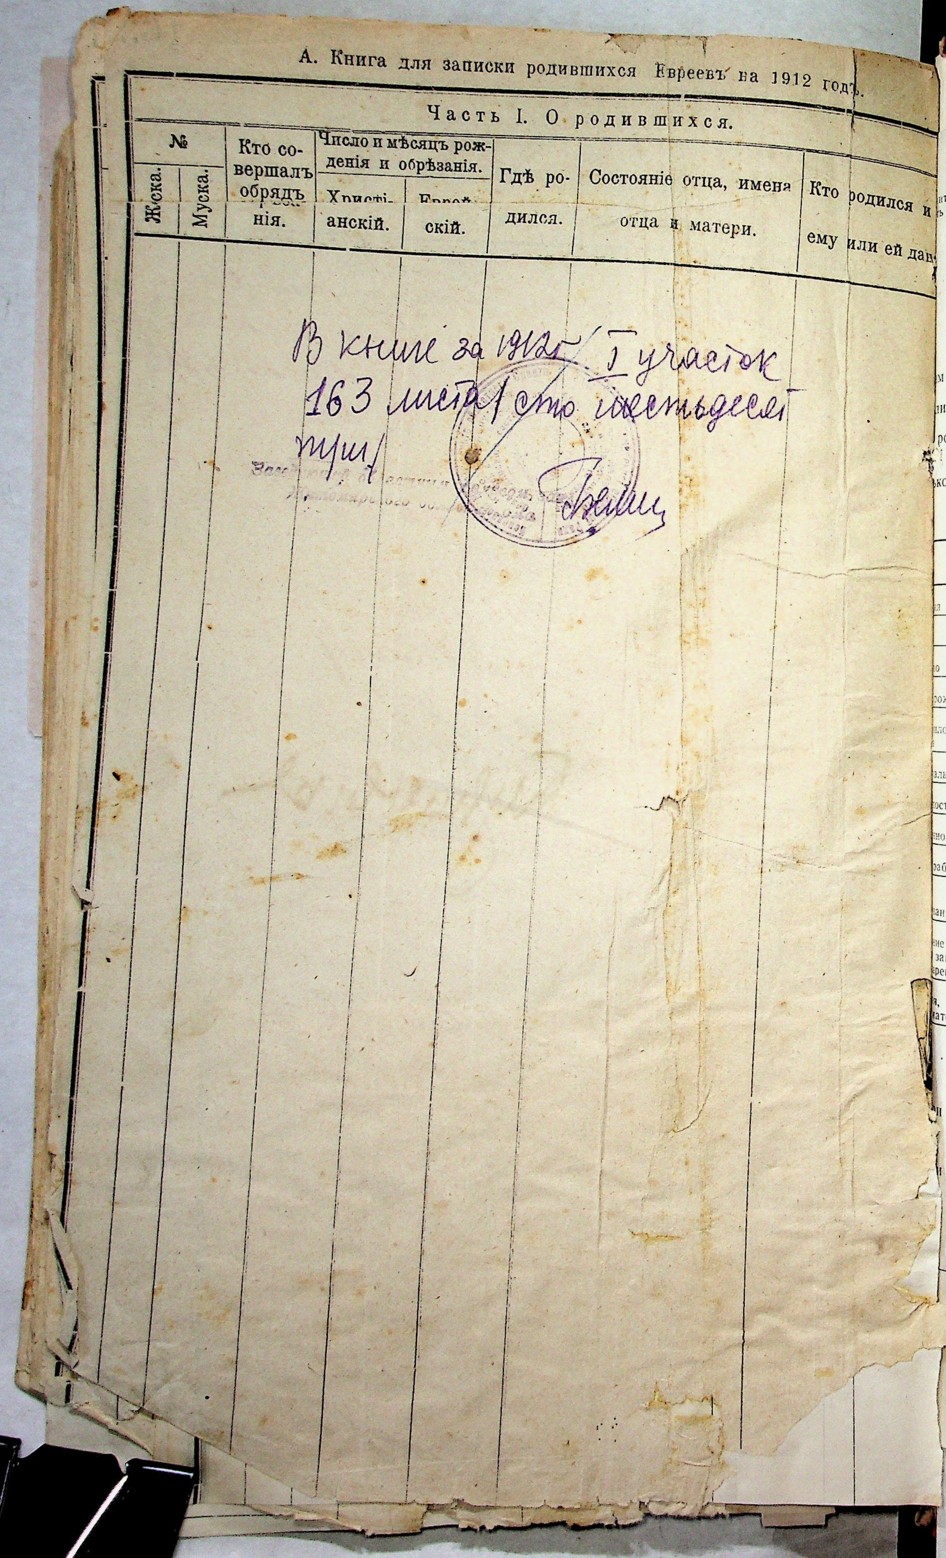 А. Книга для записки родившихся Евреевъ на 1912 годъ.
Часть I. О родившихся.
№
Ж-ска.
Муска.
Кто со-
вершалъ
обрядъ
нія.
Число и мѣсяцъ рож-
денія и обрѣзанія.
Христі-
анскій.
Еврей-
скій.
Гдѣ ро-
дился.
Состояніе отца, имена
отца и матери.
Кто родился и
ему или ей дан-
В книге за 1912г / I участок
163 листа / сто шестьдесят
три /